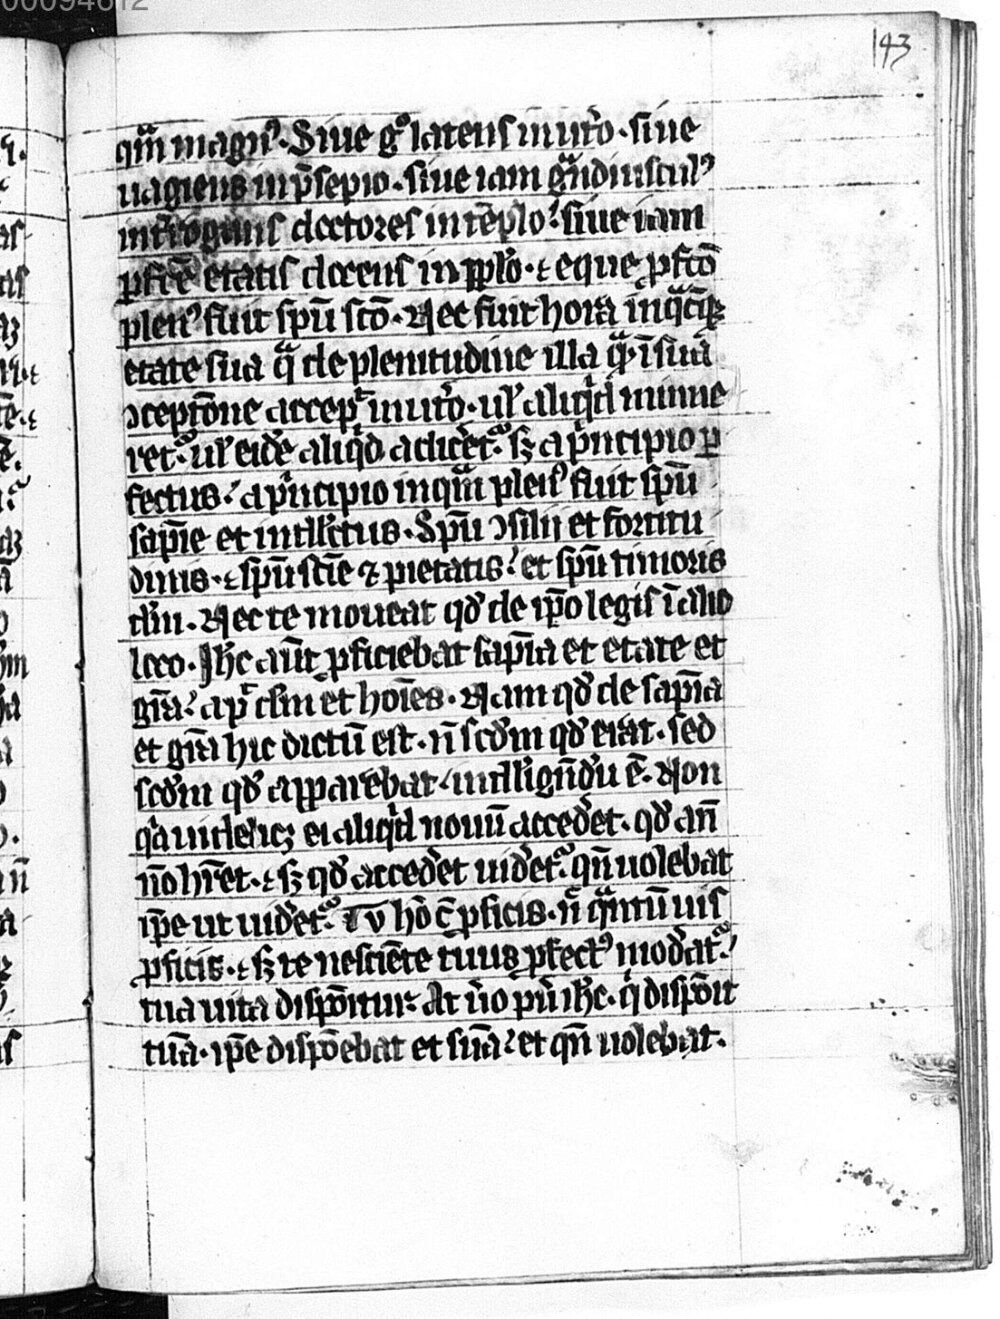 00094612
143
qm̄ magn᾿. Siue gͦ latens in utͦo. siue
uagiens in p̄sepio. siue iam gͣndiuscul᾿
int̄rogans doctores in tēplo. siue iam
ꝑfcē etatis docens in pplͦo. ⁊ eque ꝑfcō
plen᾿ fuit spū scō. Nec fuit hora in qͣcūqꝫ
etate sua qͣ de plenitudine illa qͣm ī sua
ↄceptōne accepͭ in utͦo. ul᾿ aliqͥd minue
ret᷑. ul᾿ eidē aliqͥd adicēt᷑. sꝫ a pͥncipio ꝑ
fectus. a pͥncipio inqͣm plen᾿ fuit spū
sapīe et intll̄ctus. Spū ↄsilij et fortitu
dinis. ⁊ spū scīe ⁊ pietatis. et spū timoris
dn̄i. Nec te moueat qd̄ de ip̄o legis ī alio
loco. Ihc̄ aūt ꝓficiebat sapīa et etate et
gr̄a. apͩ dm̄ et hoīes. Nam qd̄ de sapīa
et gr̄a hic dictū est. n̄ scd̄m qd̄ erat. sed
scd̄m qd̄ apparebat. intll̄igendū ē. Non
qͥa uidelicꝫ ei aliqͥd nouū accedēt. qd̄ an̄
n̄ hr̄et. ⁊ sꝫ qd̄ accedēt uidēt᷑. qn̄ uolebat
ip̄e ut uidēt᷑. Tu hō c̄ ꝓficis. n̄ qͣntū uis
ꝓficis. ⁊ sꝫ te nesciēte tuus ꝓfect᾿ modāt᷑.
tua uita dispōitur. At ūo pū ihc̄. qͥ dispōit
tuā. ip̄e dispōebat et suā. et qn̄ uolebat.